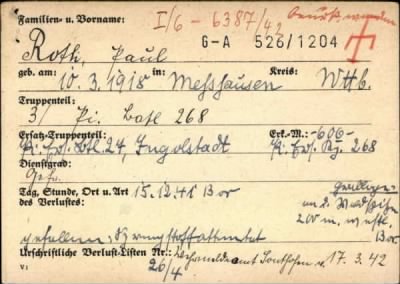 Familien- u. Vorname: I/6 - 6387/42
G-A 526/1204
Roth, Paul
geb. am: 10.3.1918 in: Messhausen Kreis: Wttb.
Truppenteil:
3/ Pi. Batl 268
Ersatz-Truppenteil: Erk.-M.: -606-
Pi. Ers. Btl. 24, Ingolstadt 268
Dienstgrad:
Gefr.
Tag, Stunde, Ort u. Art 15.12.41 Bor
des Verlustes:
200 m. westl.
Bor
gefallen,
Urschriftliche Verlust-Listen Nr.: Wehrmeldeamt Sonthofen v. 17.3.42
26/4
V1